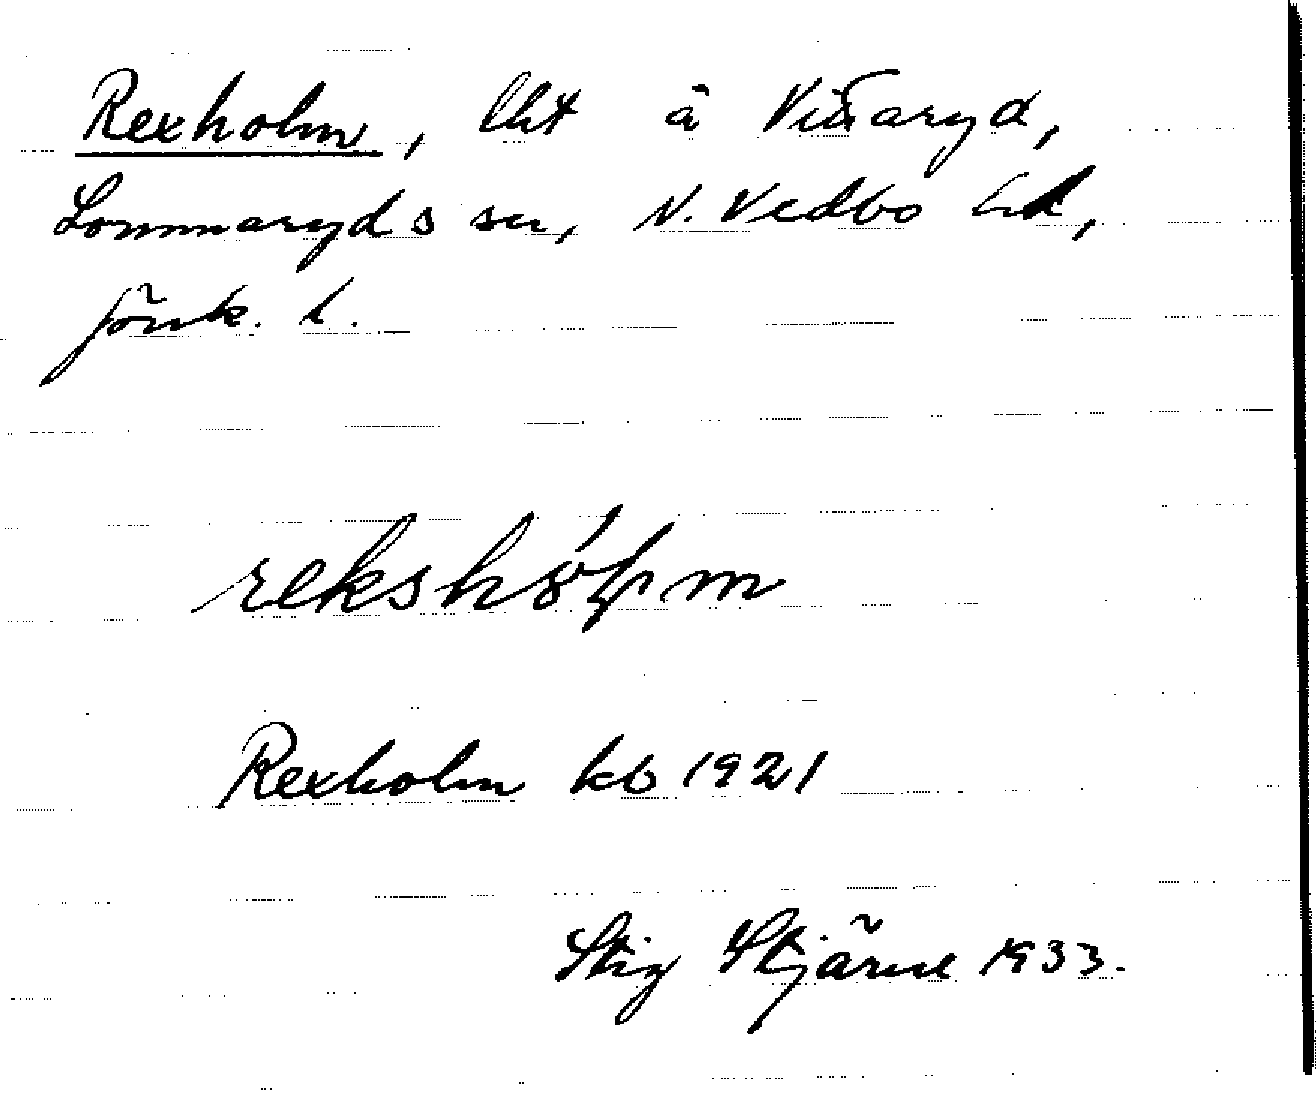 Rexholm, lht å Vidaryd,
Lommaryds sn, N. Vedbo hd,
Jönk. l.
Rexholm kb 1921
Stig Stjärne 1933.